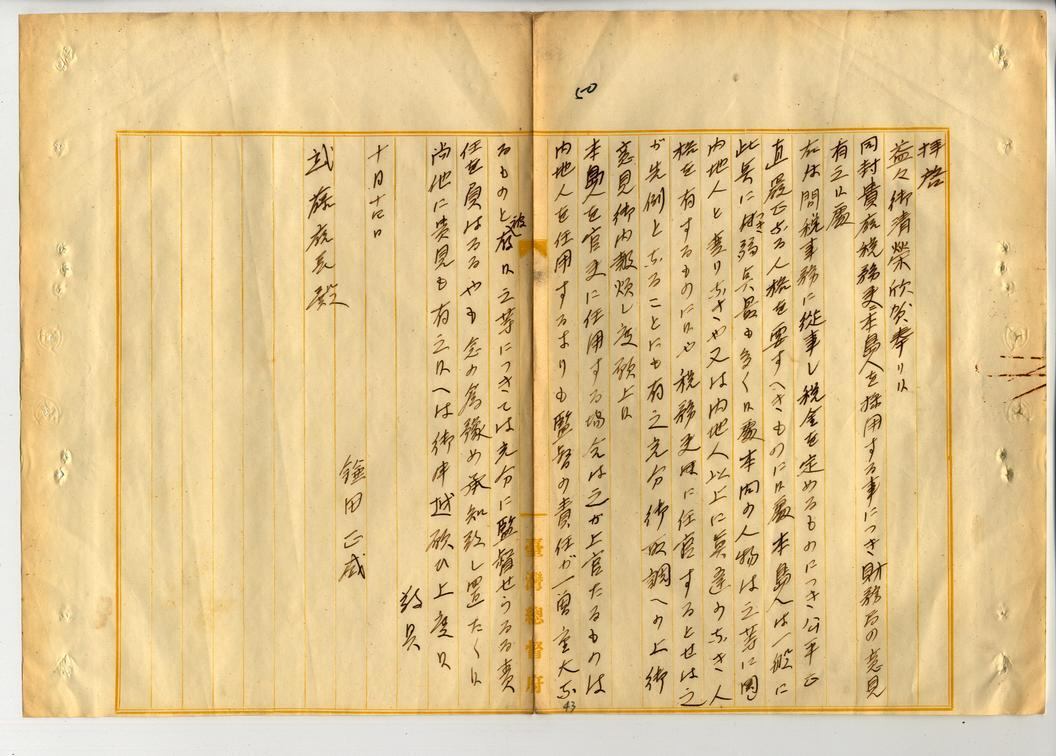 50
拝啓
益々御清栄欣賀奉り候
同封貴庁税務吏ニ本島人を採用する事につき財務局の意見
有之候處
右は間税事務に従事し税金を定めるものにつき公平正
直厳正なる人格を要すへきものに候處本島人は一般に
此点に薄弱の点最も多く候處本問の人物は之等に関し
内地人と変りなきや又は内地人以上に間違のなき人
格を有するものに候や税務吏は任官するとせは之
が先例となることにも有之充分御取調への上御
意見御内報煩し度願上候
本島人を官吏に任用する場合は之が上官たるものは
内地人を任用するよりも監督の責任が一層重大な
るものと被存候之等につきては充分に監督せらるる責
任を負はるるやも念の為豫め承知致し置たく候
尚他に貴見も有之候へは御申越願ひ上度候
敬具
十月十四日
鎌田正威
武藤庁長殿
臺灣總督府
43